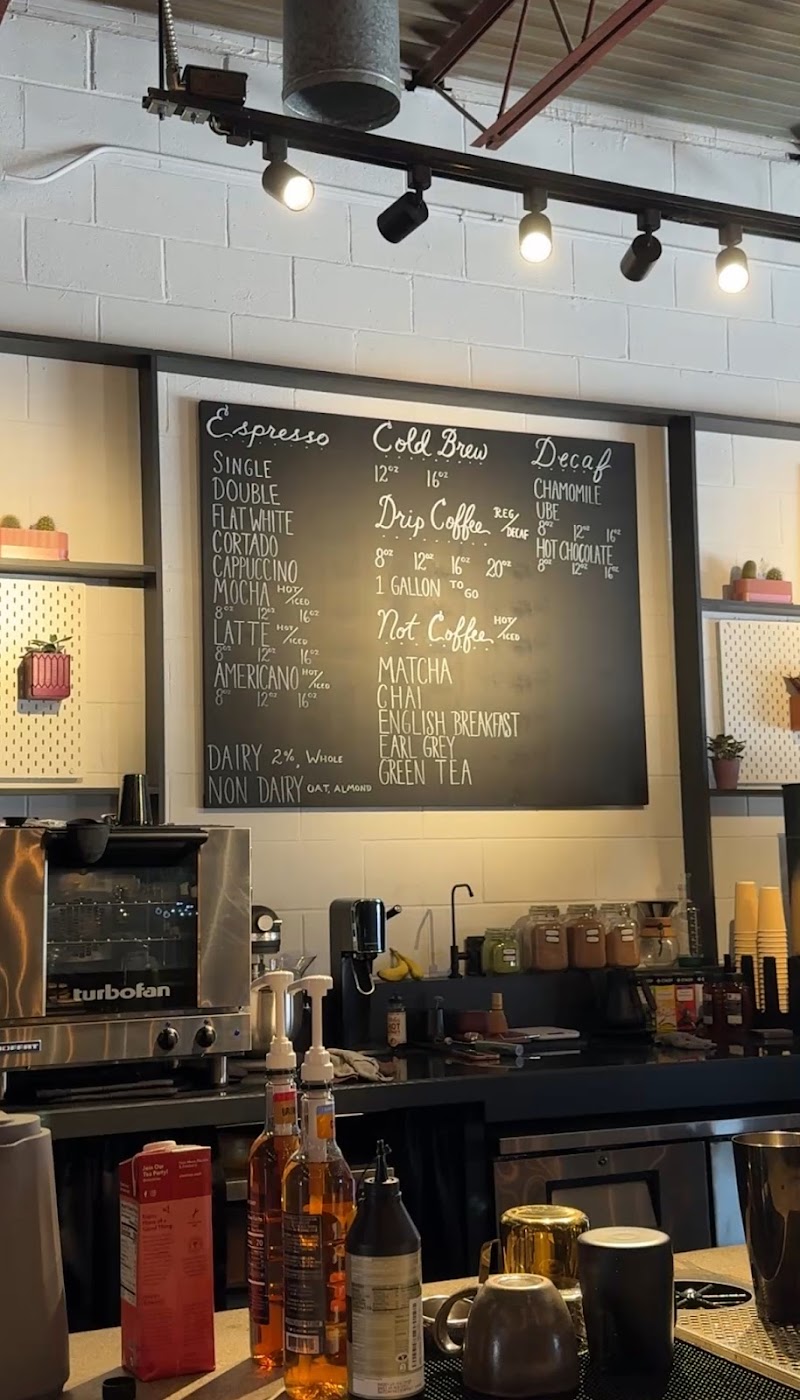 Espresso
SINGLE
DOUBLE
FLAT WHITE
CORTADO
CAPPUCCINO
MOCHA HOT/ICED
8oz 12oz 16oz
LATTE HOT/ICED
8oz 12oz 16oz
AMERICANO HOT/ICED
8oz 12oz 16oz
DAIRY 2%, WHOLE
NON DAIRY OAT, ALMOND
Cold Brew
12oz 16oz
Drip Coffee REG/DECAF
8oz 12oz 16oz 20oz
1 GALLON TO GO
Not Coffee HOT/ICED
MATCHA
CHAI
ENGLISH BREAKFAST
EARL GREY
GREEN TEA
Decaf
CHAMOMILE
UBE
8oz 12oz 16oz
HOT CHOCOLATE
8oz 12oz 16oz
turbofan
MOFFAT
Join Our
Tea Party!